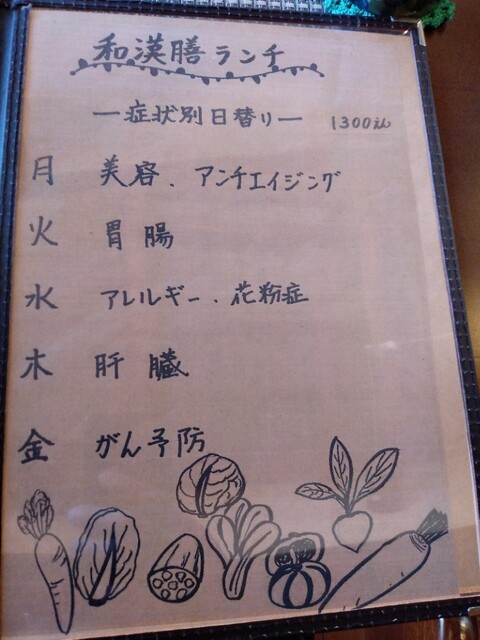 和漢膳ランチ
―症状別日替り― 1300えん
月 美容、アンチエイジング
火 胃腸
水 アレルギー、花粉症
木 肝臓
金 がん予防